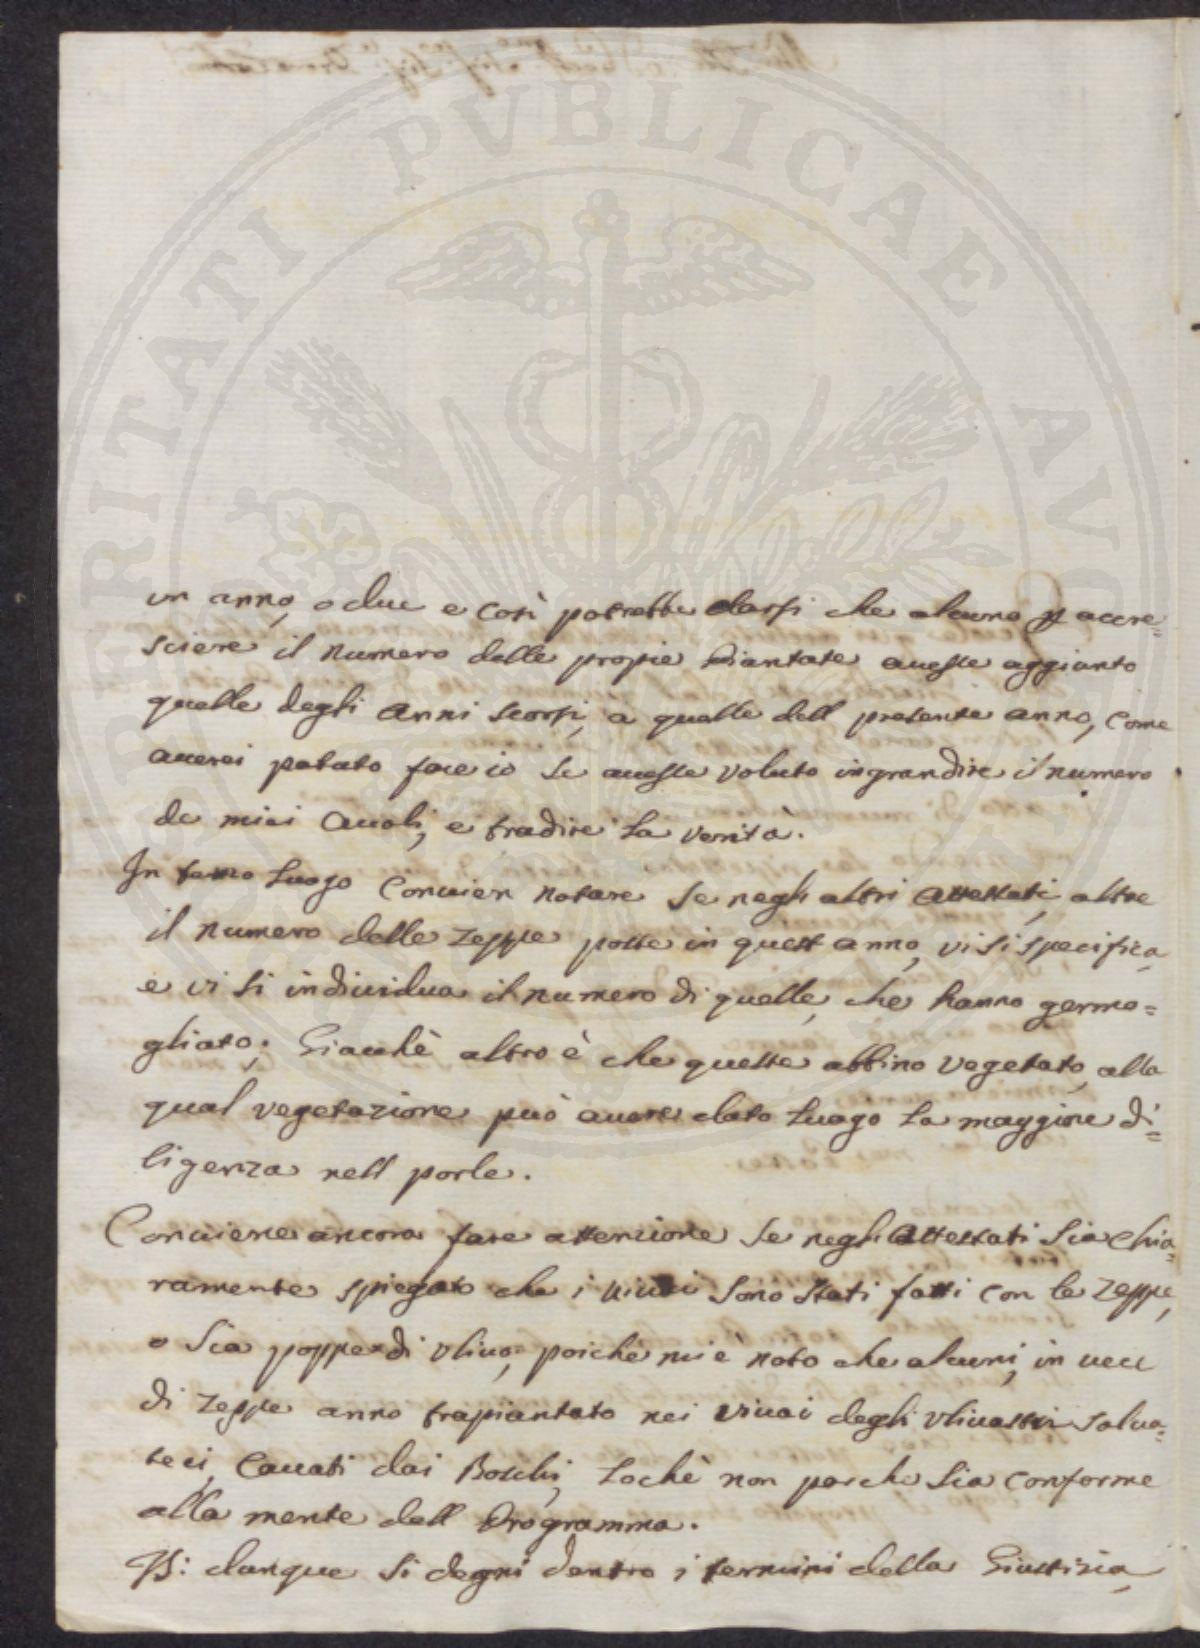 PROSPERITATI PVBLICAE AVGENDAE
un anno, o due e così potrebbe darsi che alcuno p accre=
sciere il numero delle propie Piantate avesse aggiunto
quelle degli anni scorsi, a quelle dell presente anno, come
averei potuto fare io se avesse voluto ingrandire il numero
de miei Cavoli, e tradire la verità.
In terzo luogo Convien notare se negli altri attestati, oltre
il numero delle zeppe poste in quest anno, vi si specifica
e vi si individua il numero di quelle, che hanno germo=
gliato; Giacchè altro è che queste abbino vegetato, alla
qual vegetazione può avere dato luogo la maggiore di=
ligenza nell porle.
Conviene ancora fare attenzione se negli Attestati sia chia=
ramente spiegato che i vivai sono stati fatti con le zeppe,
o sia poppe di vlivo, poichè mi è noto che alcuni, in vece
di zeppe anno trapiantato nei vivai degli vlivastri salva=
teci, Cavati dai Boschi, lochè non parche sia conforme
alla mente dell Programma.
VS: dunque si degni dentro i termini della Giustizia,